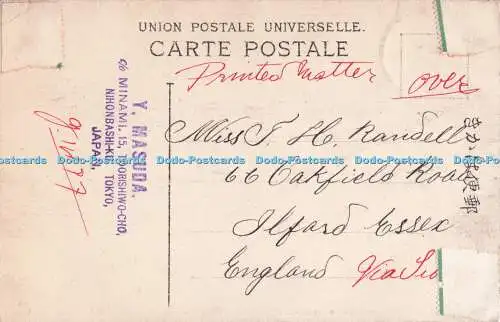 UNION POSTALE UNIVERSELLE.
CARTE POSTALE
Printed Matter
over
Y. MASUDA.
c/o MINAMI, 15,
NIHONBASHI-KU, TOKYO,
JAPAN.
Miss T. H. Randell
66 Oakfield Road
Ilford Essex
England
Via
きかは便郵
Dodo-Postcards Dodo-Postcards Dodo-Postcards Dodo-Postcards Dodo-Postcards